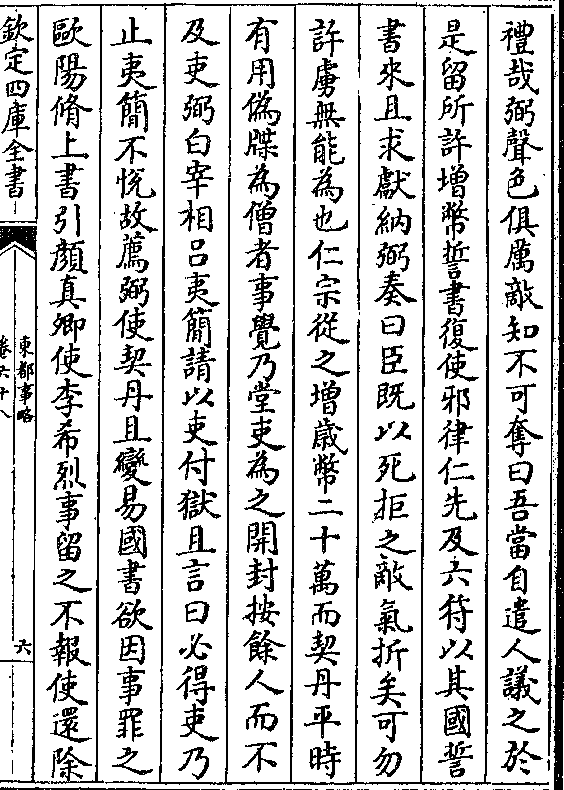 禮哉弼聲色俱厲敵知不可奪曰吾當自遣人議之於
是留所許增幣誓書復使耶律仁先及六符以其國誓
書來且求獻納弼奏曰臣既以死拒之敵氣折矣可勿
許虜無能為也仁宗從之增歲幣二十萬而契丹平時
有用偽牒為僧者事覺乃堂吏為之開封按餘人而不
及吏弼白宰相呂夷簡請以吏付獄且言曰必得吏乃
止夷簡不悅故薦弼使契丹且變易國書欲因事罪之
歐陽脩上書引顏真卿使李希烈事留之不報使還除
欽定四庫全書
東都事略
卷六十八
六